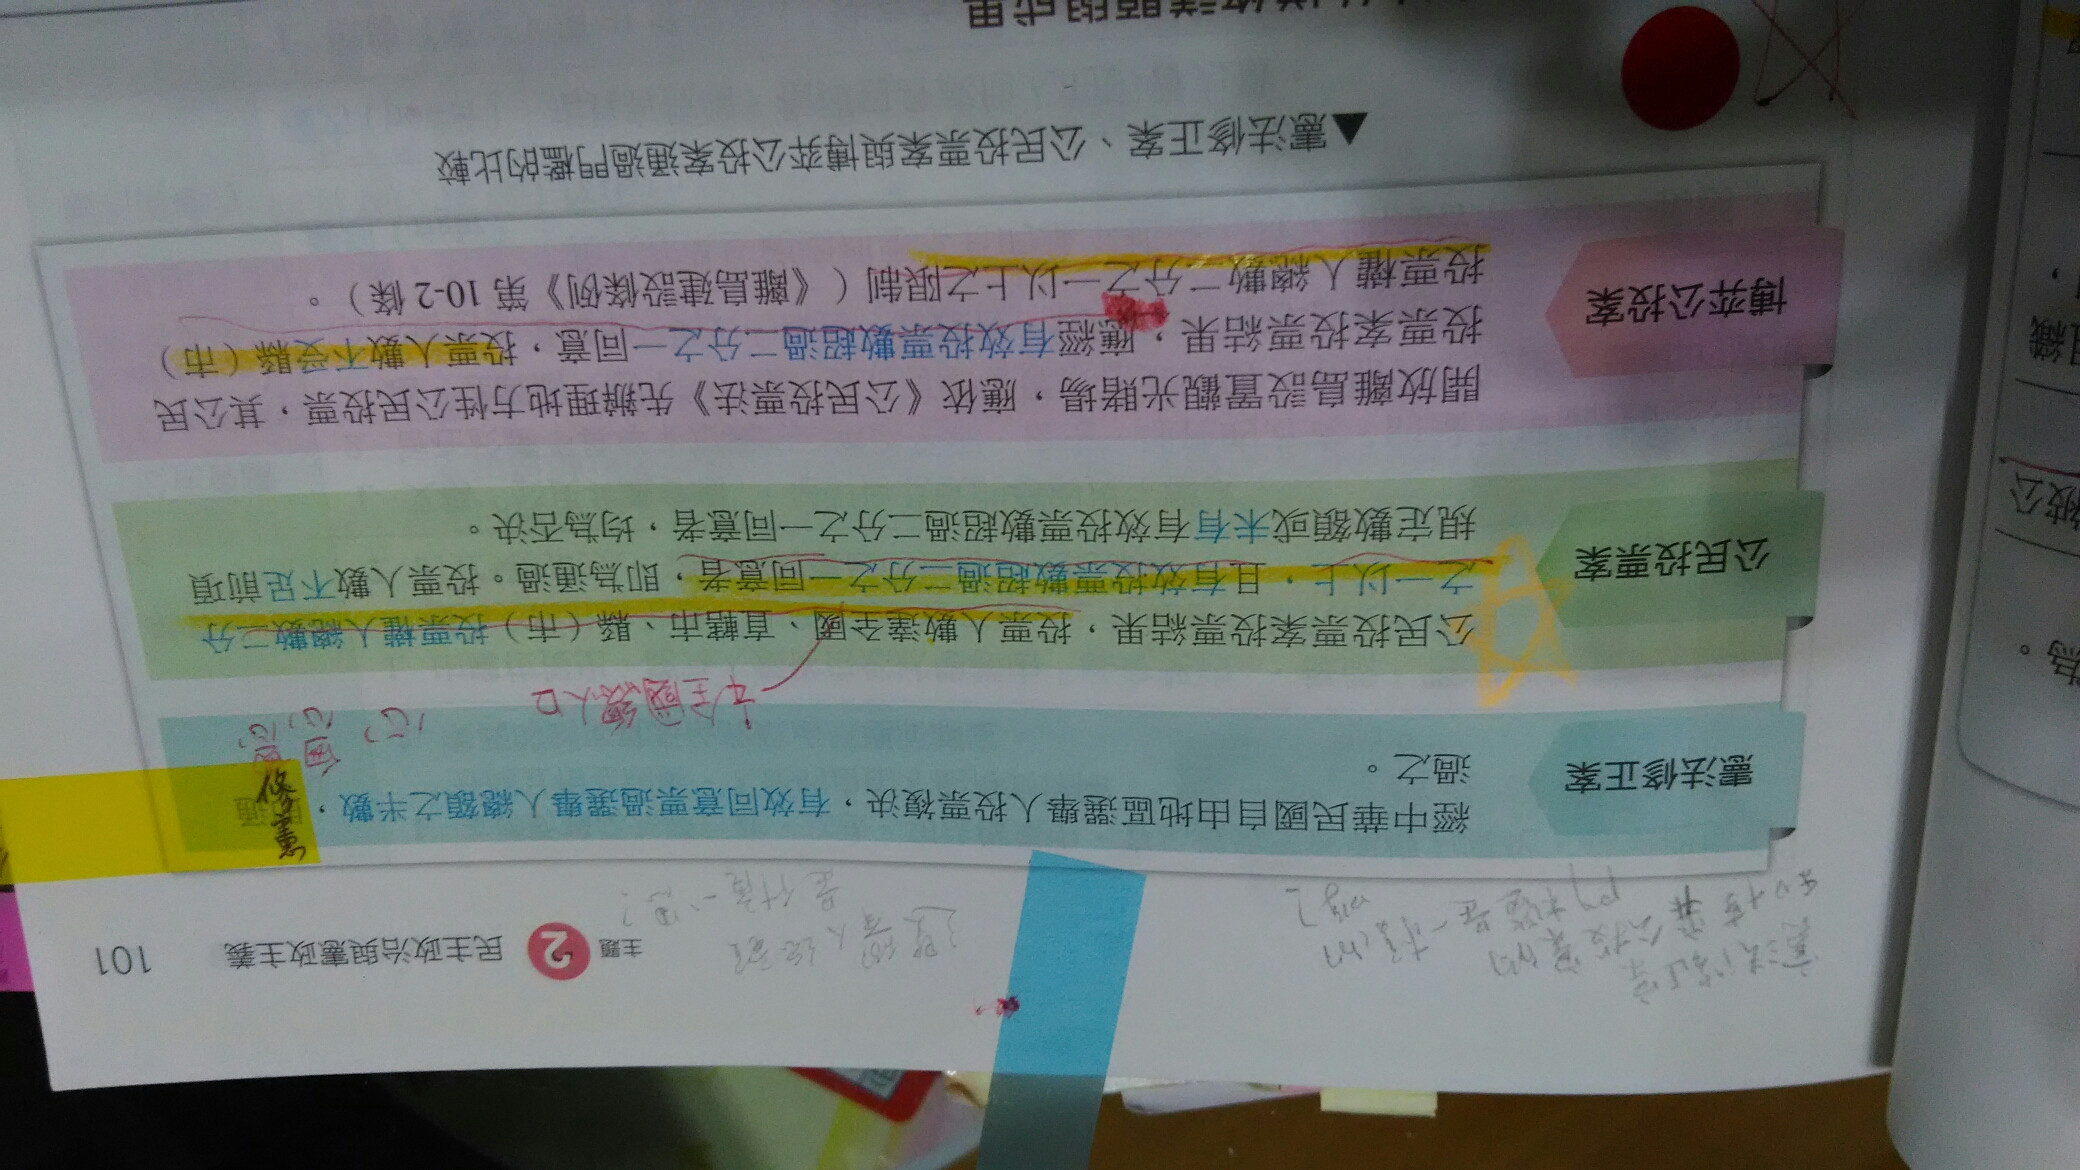 主題 2 民主政治與憲政主義 101
憲法修正案
經中華民國自由地區選舉人投票複決，有效同意票過選舉人總額之半數，即通
過之。
修憲
本全國總人口
公民投票案
公民投票案投票結果，投票人數達全國、直轄市、縣（市）投票權人總數二分
之一以上，且有效投票數超過二分之一同意者，即為通過。投票人數不足前項
規定數額或未有有效投票數超過二分之一同意者，均為否決。
博弈公投案
開放離島設置觀光賭場，應依《公民投票法》先辦理地方性公民投票，其公民
投票案投票結果，應經有效投票數超過二分之一同意，投票人數不受縣（市）
投票權人總數二分之一以上之限制（《離島建設條例》第 10-2 條）。
▲憲法修正案、公民投票案與博弈公投案通過門檻的比較